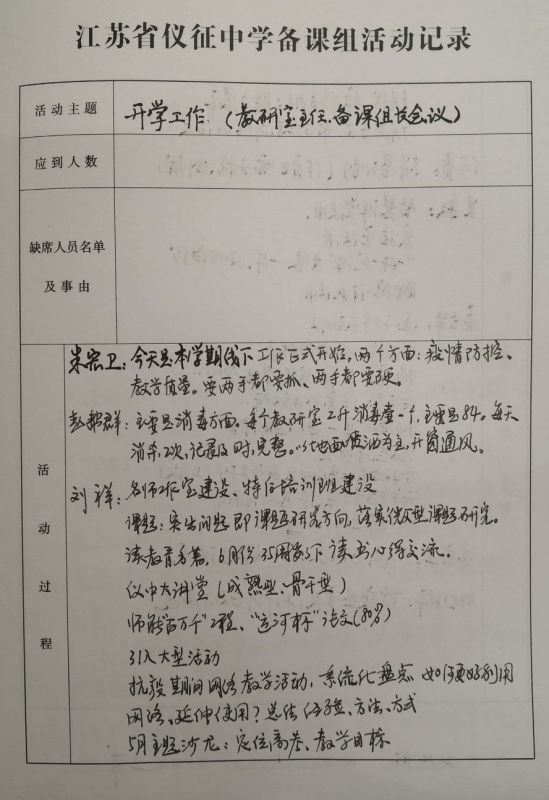 江苏省仪征中学备课组活动记录
活动主题
开学工作（教研室主任、备课组长会议）
应到人数
缺席人员名单
及事由
活动过程
朱宏卫：今天是本学期线下工作正式开始，两个方面：疫情防控、
教学质量。要两手都要抓、两手都要硬。
彭郝群：主要是消毒方面，每个教研室2升消毒壶一个，主要是84。每天
消杀2次，记录及时、完整。以地面喷洒为主，开窗通风。
刘祥：名师工作室建设、特后培训班建设
课题：突出问题即课题研究方向，落实微型课题研究。
读教育名著，6月份35周岁以下读书心得交流。
仪中大讲堂（成熟型、骨干型）
师能“百万千”工程、“运河杯”论文(80%)
引入大型活动
抗疫期间网络教学活动，系统化盘点 如何更好利用
网络、延伸使用？总结经验、方法、方式
5月主题沙龙：定位高考、教学目标